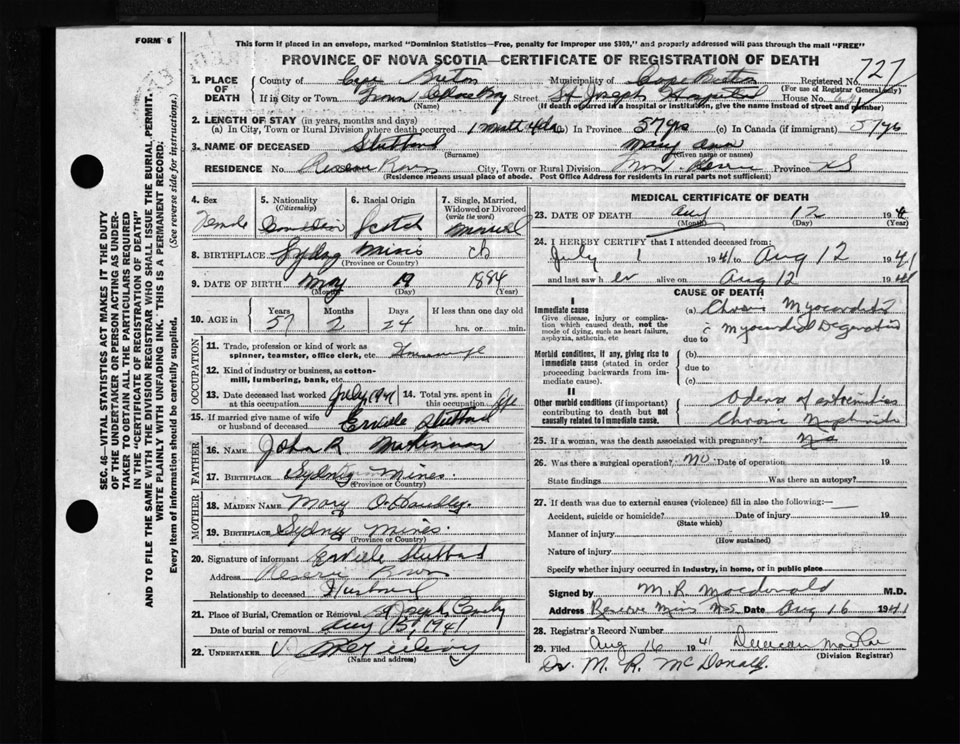 FORM 6
This form if placed in an envelope, marked "Dominion Statistics—Free, penalty for improper use $300," and properly addressed will pass through the mail "FREE"
PROVINCE OF NOVA SCOTIA—CERTIFICATE OF REGISTRATION OF DEATH
SEC. 46—VITAL STATISTICS ACT MAKES IT THE DUTY
OF THE UNDERTAKER OR PERSON ACTING AS UNDER-
TAKER TO OBTAIN ALL THE PARTICULARS REQUIRED
IN THE "CERTIFICATE OF REGISTRATION OF DEATH"
AND TO FILE THE SAME WITH THE DIVISION REGISTRAR WHO SHALL ISSUE THE BURIAL PERMIT.
WRITE PLAINLY WITH UNFADING INK. THIS IS A PERMANENT RECORD.
Every item of information should be carefully supplied. (See reverse side for instructions.)
1. PLACE OF DEATH County of Cape Breton Municipality of Cape Breton Registered No. 727
(For use of Registrar General only)
If in City or Town Town Glace Bay Street St Joseph Hospital House No.
(Name) (If death occurred in a hospital or institution, give the name instead of street and number)
2. LENGTH OF STAY (in years, months and days)
(a) In City, Town or Rural Division where death occurred 1 month (b) In Province 57 yrs (c) In Canada (if immigrant) 57 yrs
3. NAME OF DECEASED Stubbard Mary Ann
(Surname) (Given name or names)
RESIDENCE No. City, Town or Rural Division Province NS
(Residence means usual place of abode. Post Office Address for residents in rural parts not sufficient)
4. Sex Female
5. Nationality (Citizenship) Canadian
6. Racial Origin Scotch
7. Single, Married, Widowed or Divorced (write the word) Married
8. BIRTHPLACE Sydney Mines CB
(Province or Country)
9. DATE OF BIRTH May 19 1884
(Month) (Day) (Year)
10. AGE in Years 57 Months 2 Days 24 If less than one day hrs. or min.
OCCUPATION
11. Trade, profession or kind of work as spinner, teamster, office clerk, etc. Housewife
12. Kind of industry or business, as cotton-mill, lumbering, bank, etc.
13. Date deceased last worked at this occupation July, 1941 14. Total yrs. spent in this occupation Life
15. If married give name of wife or husband of deceased Stubbard
FATHER
16. NAME John R MacKinnon
17. BIRTHPLACE Sydney Mines.
(Province or Country)
MOTHER
18. MAIDEN NAME Mary
19. BIRTHPLACE Sydney Mines.
(Province or Country)
20. Signature of informant Stubbard
Address Reserve
Relationship to deceased Husband
21. Place of Burial, Cremation or Removal St Joseph
Date of burial or removal Aug 15, 1941
22. UNDERTAKER
(Name and address)
MEDICAL CERTIFICATE OF DEATH
23. DATE OF DEATH Aug 12 1941
(Month) (Day) (Year)
24. I HEREBY CERTIFY that I attended deceased from:
July 1 1941 to Aug 12 1941
and last saw her alive on Aug 12 1941
CAUSE OF DEATH
I
Immediate cause
Give disease, injury or complication which caused death, not the mode of dying, such as heart failure, asphyxia, asthenia, etc
(a) Chronic Myocarditis
due to c Myocardial Degeneration
Morbid conditions, if any, giving rise to immediate cause (stated in order proceeding backwards from immediate cause).
(b)
due to
(c)
II
Other morbid conditions (if important) contributing to death but not causally related to immediate cause.
Odema of extremities
Chronic Nephritis
25. If a woman, was the death associated with pregnancy? No
26. Was there a surgical operation? No Date of operation 19
State findings Was there an autopsy?
27. If death was due to external causes (violence) fill in also the following:—
Accident, suicide or homicide? Date of injury 19
(State which)
Manner of injury
(How sustained)
Nature of injury
Specify whether injury occurred in industry, in home, or in public place
Signed by M. R. Macdonald M.D.
Address Reserve Mines NS Date Aug 16 1941
28. Registrar's Record Number
29. Filed Aug 16 1941 Duncan
(Division Registrar)
Dr. M. R. McDonald.